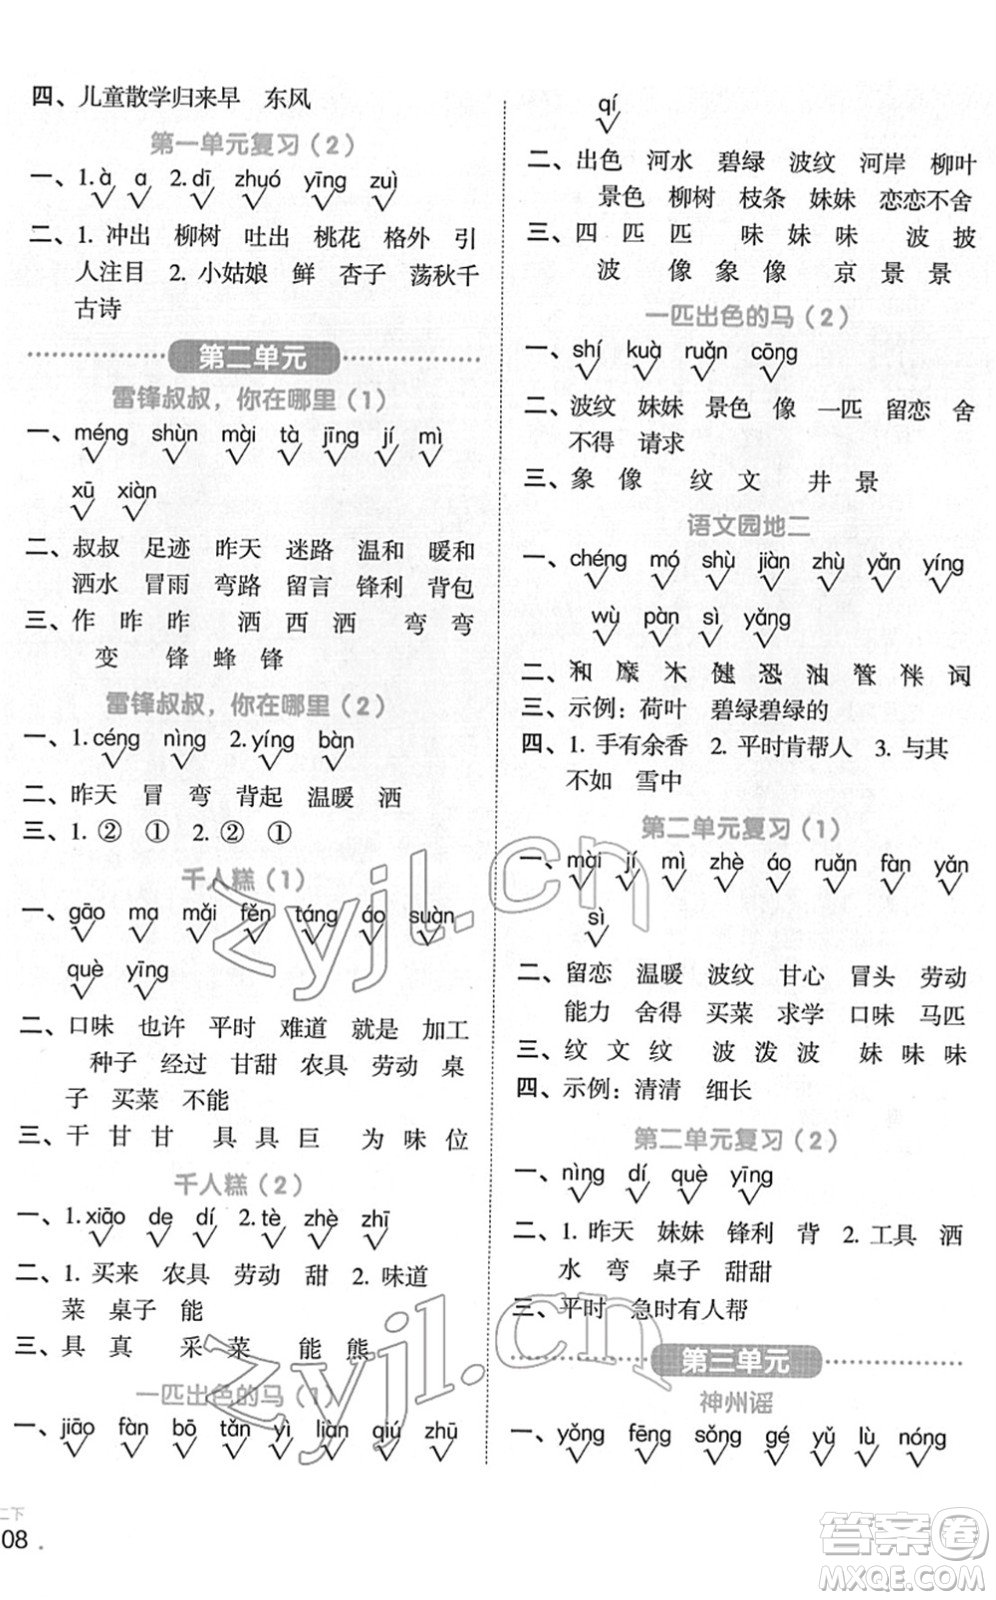 四、儿童散学归来早 东风
第一单元复习（2）
一、1.à ɑ 2.dī zhuó yīng zuì
二、1. 冲出 柳树 吐出 桃花 格外 引
人注目 2. 小姑娘 鲜 杏子 荡秋千
古诗
第二单元
雷锋叔叔，你在哪里（1）
一、méng shùn mài tà jīng jí mì
xū xiàn
二、叔叔 足迹 昨天 迷路 温和 暖和
洒水 冒雨 弯路 留言 锋利 背包
三、作 昨 昨 洒 西 洒 弯 弯
变 锋 蜂 锋
雷锋叔叔，你在哪里（2）
一、1.céng nìng 2.yíng bàn
二、昨天 冒 弯 背起 温暖 洒
三、1. ② ① 2. ② ①
千人糕（1）
一、gāo mɑ mǎi fěn táng áo suàn
què yīng
二、口味 也许 平时 难道 就是 加工
种子 经过 甘甜 农具 劳动 桌
子 买菜 不能
三、干 甘 甘 具 具 巨 为 味 位
千人糕（2）
一、1.xiāo de dí 2.tè zhè zhī
二、1. 买来 农具 劳动 甜 2. 味道
菜 桌子 能
三、具 真 采 菜 能 熊
一匹出色的马（1）
一、jiāo fàn bō tǎn yì liàn qiú zhū
二下
08
qí
二、出色 河水 碧绿 波纹 河岸 柳叶
景色 柳树 枝条 妹妹 恋恋不舍
三、四 匹 匹 味 妹 味 波 披
波 像 象 像 京 景 景
一匹出色的马（2）
一、shí kuà ruǎn cōng
二、波纹 妹妹 景色 像 一匹 留恋 舍
不得 请求
三、象 像 纹 文 井 景
语文园地二
一、chéng mó shù jiàn zhù yǎn yíng
wù pàn sì yǎng
二、和 摩 木 健 恐 油 管 样 词
三、示例：荷叶 碧绿碧绿的
四、1. 手有余香 2. 平时肯帮人 3. 与其
不如 雪中
第二单元复习（1）
一、mài jí mì zhè áo ruǎn fàn yǎn
sì
二、留恋 温暖 波纹 甘心 冒头 劳动
能力 舍得 买菜 求学 口味 马匹
三、纹 文 纹 波 泼 波 妹 味 味
四、示例：清清 细长
第二单元复习（2）
一、nìng dí què yīng
二、1. 昨天 妹妹 锋利 背 2. 工具 洒
水 弯 桌子 甜甜
三、平时 急时有人帮
第三单元
神州谣
一、yǒng fēng sǒng gé yǔ lù nóng
zyjl.cn
zyjl.cn
答案卷
MXQE.COM